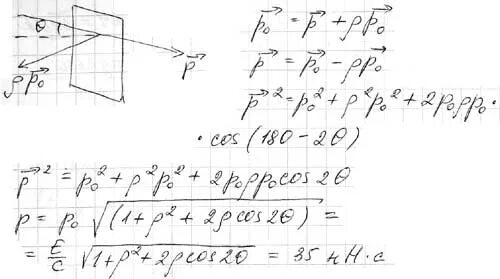 θ
p⃗
ρp⃗₀
p⃗₀ = p⃗ + ρp⃗₀
p⃗ = p⃗₀ - ρp⃗₀
p⃗² = p₀² + ρ²p₀² + 2p₀ρp₀ ·
· cos(180 - 2θ)
p⃗² = p₀² + ρ²p₀² + 2p₀ρp₀ cos 2θ
p = p₀ √(1 + ρ² + 2ρ cos 2θ) =
= E/c √1 + ρ² + 2ρ cos 2θ = 35 нН·с